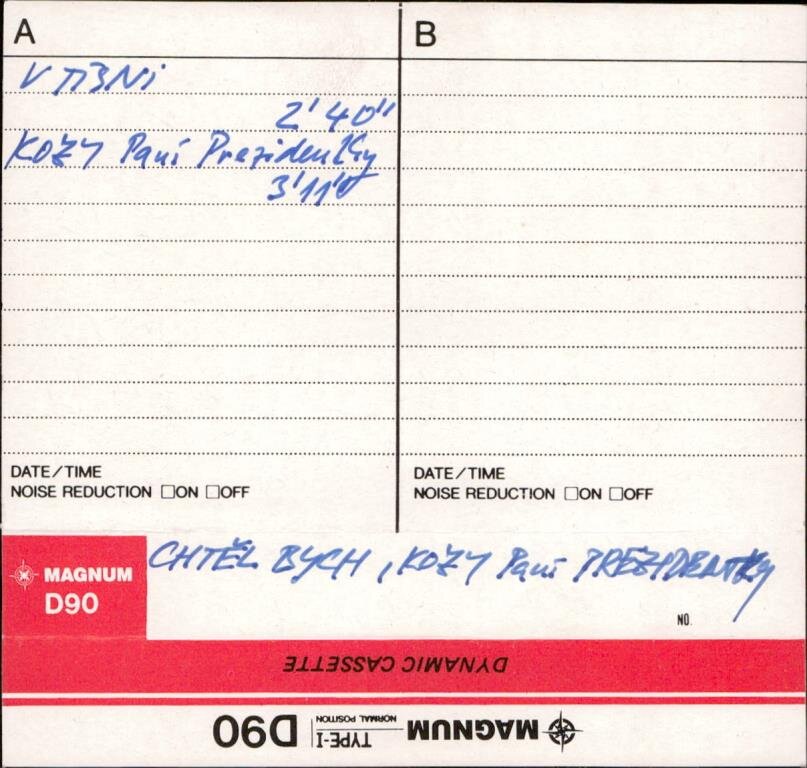 A
B
V TÍSNI
2' 40"
KOZY Paní Prezidentky
3'11"
DATE/TIME
NOISE REDUCTION ☐ON ☐OFF
DATE/TIME
NOISE REDUCTION ☐ON ☐OFF
MAGNUM
D90
CHTĚL BYCH, KOZY Paní PREZIDENTKY
NO.
DYNAMIC CASSETTE
MAGNUM NORMAL POSITION TYPE-I D90